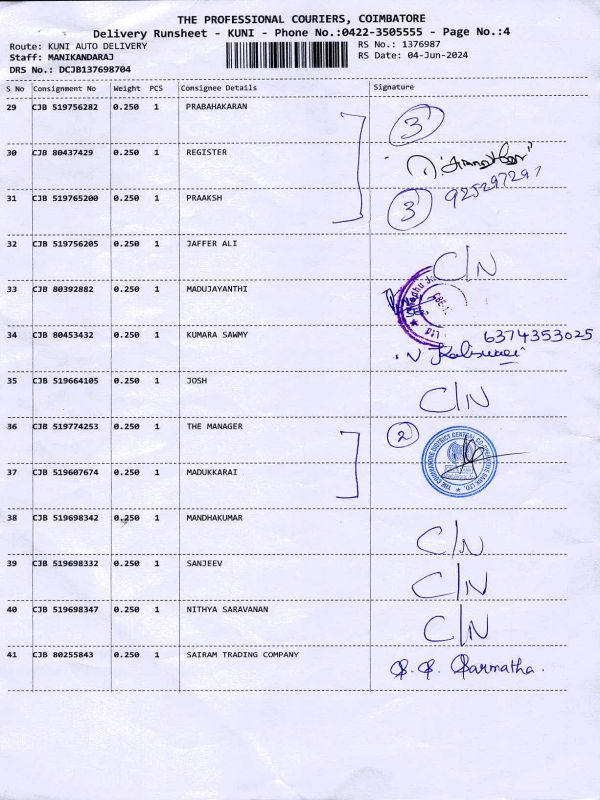 THE PROFESSIONAL COURIERS, COIMBATORE
Delivery Runsheet - KUNI - Phone No.:0422-3505555 - Page No.:4
Route: KUNI AUTO DELIVERY RS No.: 1376987
Staff: MANIKANDARAJ RS Date: 04-Jun-2024
DRS No.: DCJB137698704
S No Consignment No Weight PCS Consignee Details Signature
29 CJB 519756282 0.250 1 PRABAHAKARAN 3
30 CJB 80437429 0.250 1 REGISTER
31 CJB 519765200 0.250 1 PRAAKSH 3
32 CJB 519756205 0.250 1 JAFFER ALI C/N
33 CJB 80392882 0.250 1 MADUJAYANTHI
34 CJB 80453432 0.250 1 KUMARA SAWMY 6374353025
35 CJB 519664105 0.250 1 JOSH C/N
36 CJB 519774253 0.250 1 THE MANAGER 2
THE COIMBATORE DISTRICT CENTRAL CO-OPERATIVE BANK LTD.
37 CJB 519607674 0.250 1 MADUKKARAI
38 CJB 519698342 0.250 1 MANDHAKUMAR C/N
39 CJB 519698332 0.250 1 SANJEEV C/N
40 CJB 519698347 0.250 1 NITHYA SARAVANAN C/N
41 CJB 80255843 0.250 1 SAIRAM TRADING COMPANY S. S. Sarmatha.